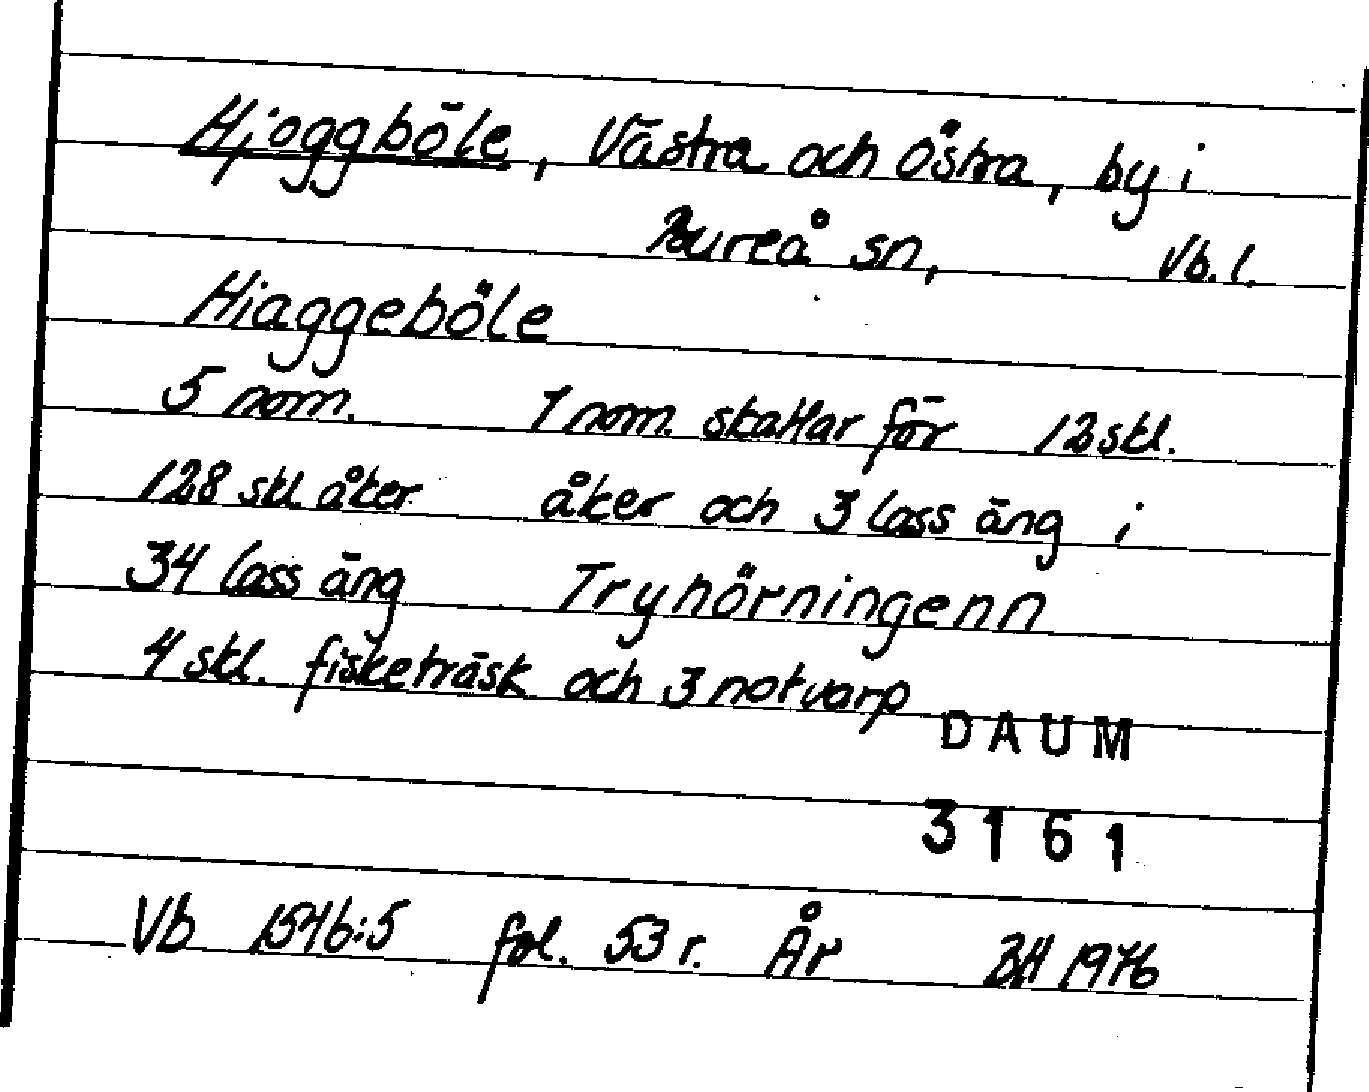 Hjoggböle, Västra och Östra, by i
Bureå sn, Vb. l.
Hiaggeböle
5 nom. 1 nom. skattar för 12 skl.
128 skl. åker åker och 3 lass äng i
34 lass äng Tryhörningenn
4 skl. fisketräsk och 3 notvarp
DAUM
3161
Vb 1546:5 fol. 53 r. År BH 1976